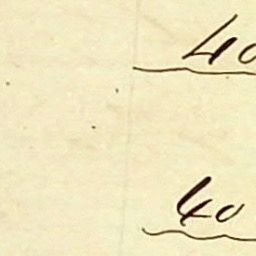 40
40